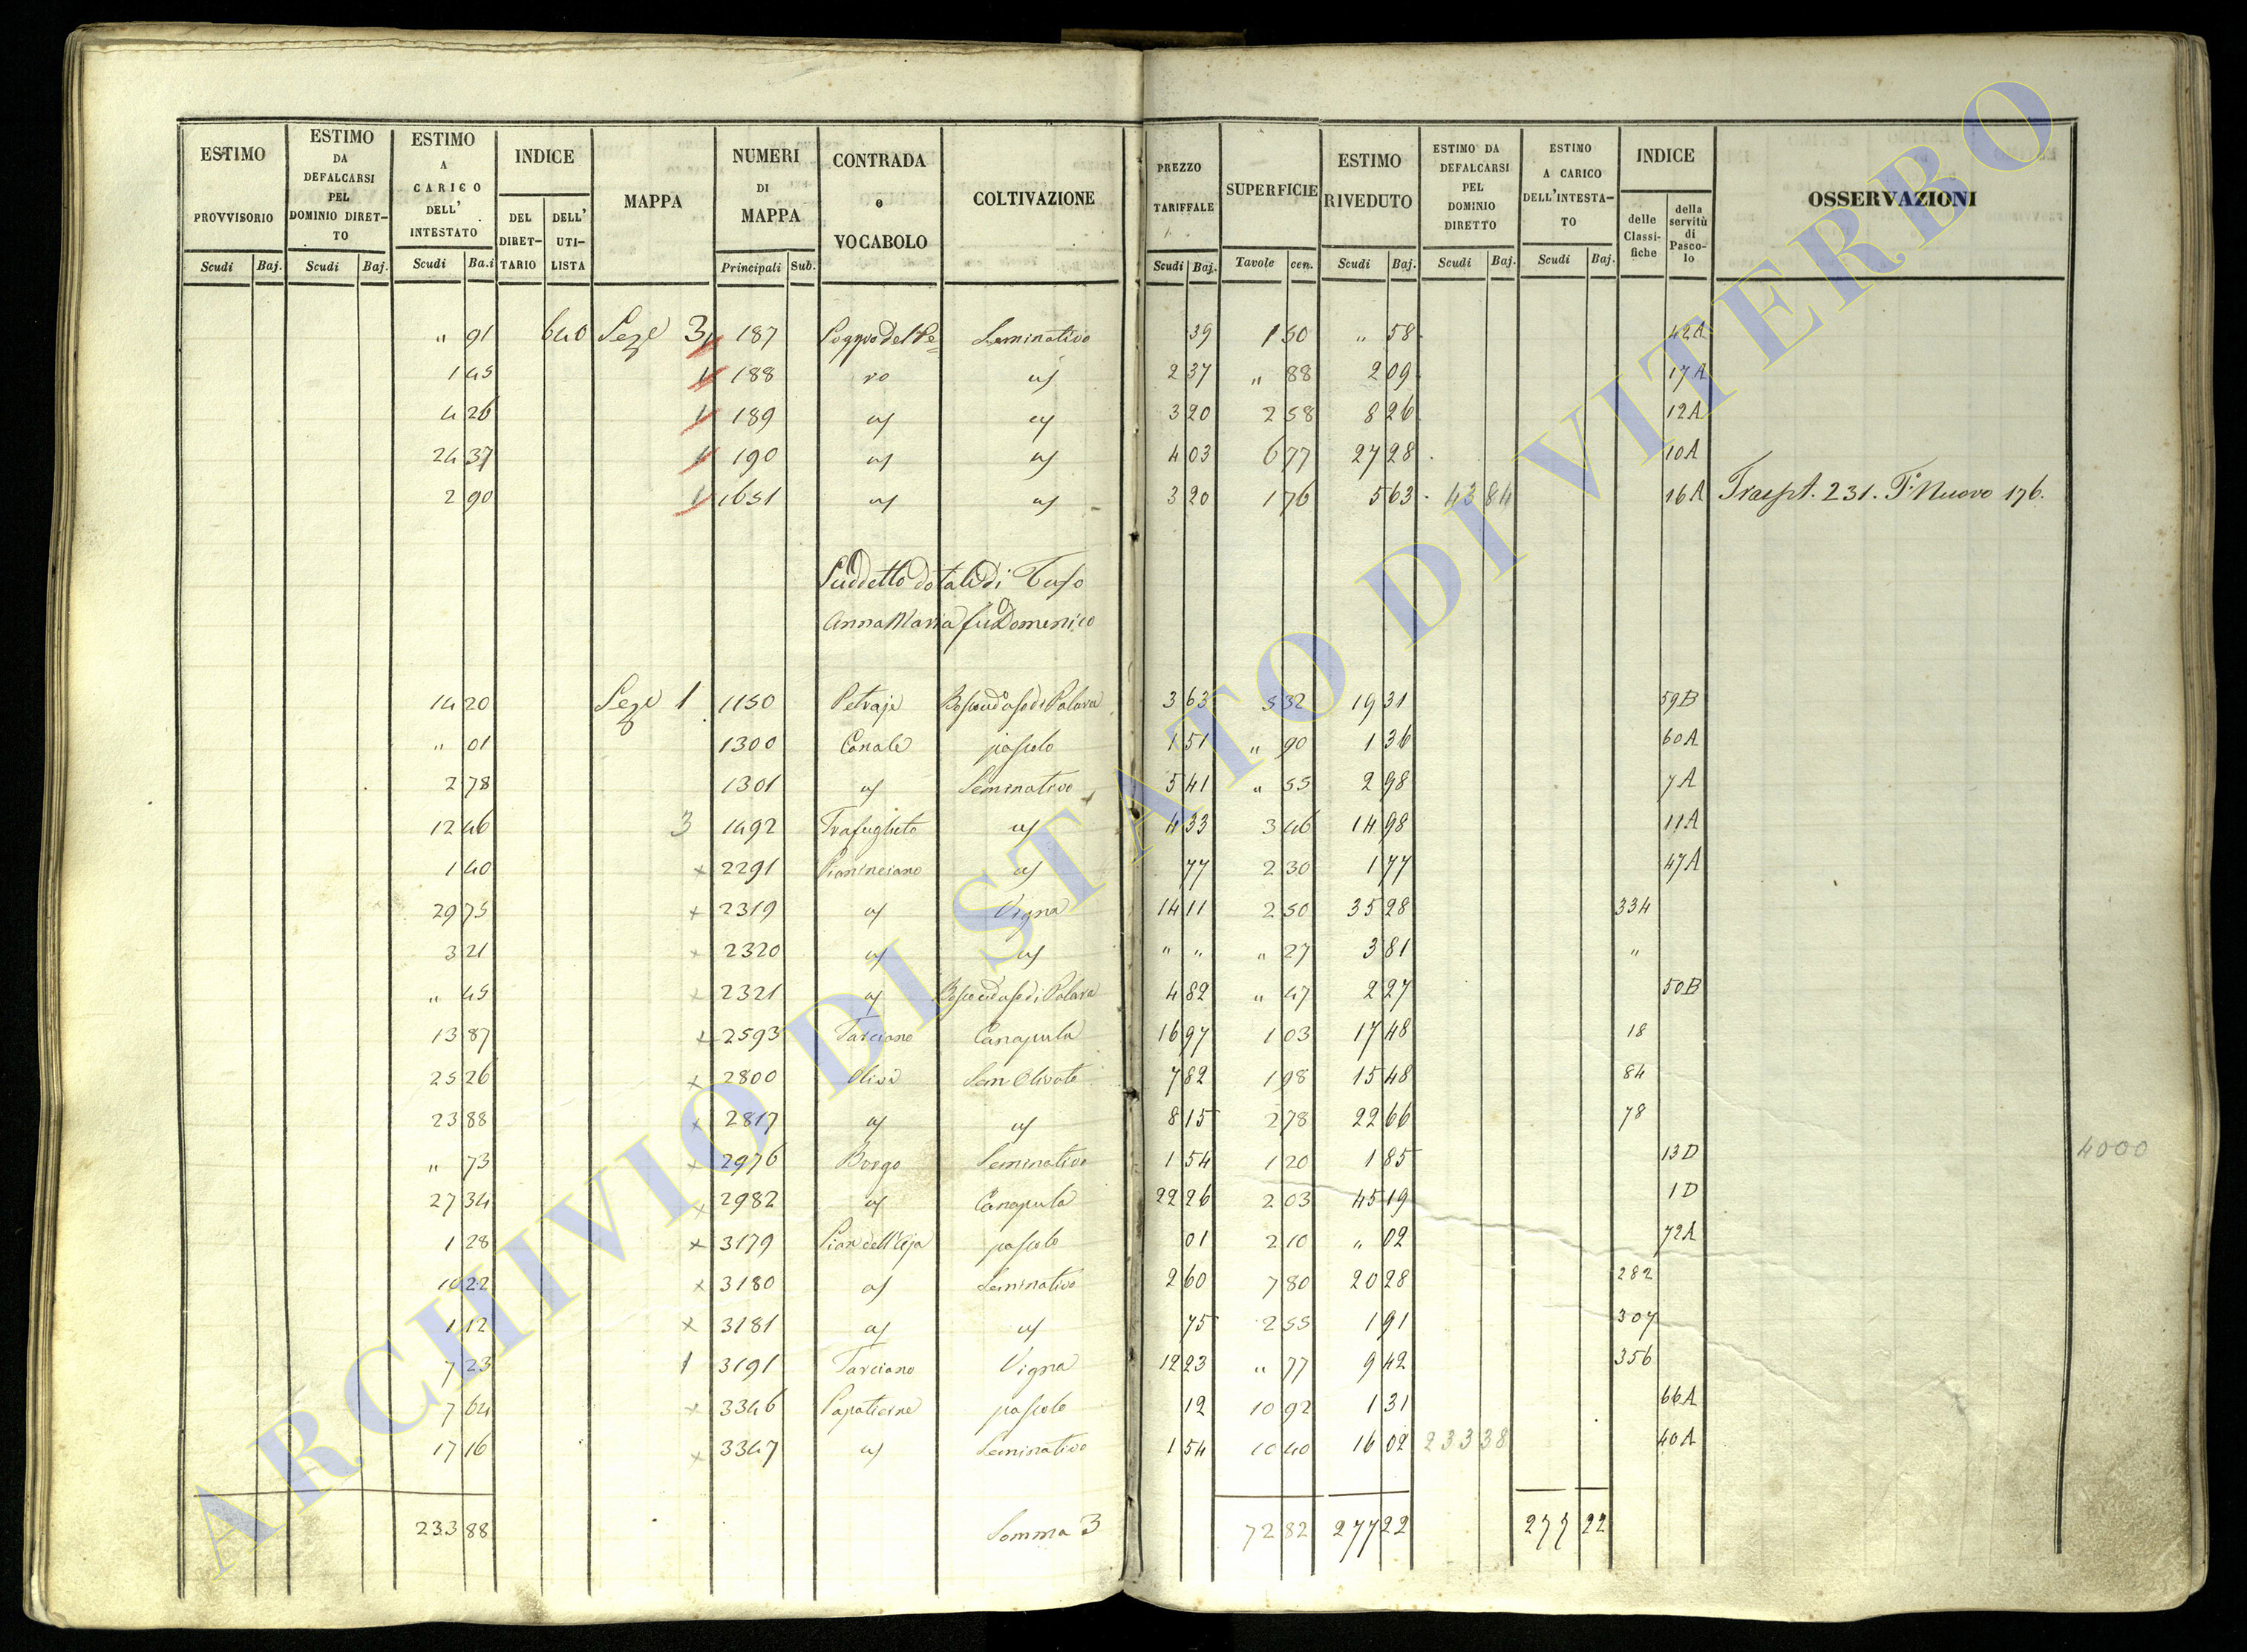 ESTIMO PROVVISORIO Scudi Baj. | ESTIMO DA DEFALCARSI PEL DOMINIO DIRET-TO Scudi Baj. | ESTIMO A CARICO DELL' INTESTATO Scudi Ba.i | INDICE DEL DIRET-TARIO | DELL' UTI-LISTA | MAPPA | NUMERI DI MAPPA Principali Sub. | CONTRADA e VOCABOLO | COLTIVAZIONE | PREZZO TARIFFALE Scudi Baj. | SUPERFICIE Tavole cen. | ESTIMO RIVEDUTO Scudi Baj. | ESTIMO DA DEFALCARSI PEL DOMINIO DIRETTO Scudi Baj. | ESTIMO A CARICO DELL'INTESTA-TO Scudi Baj. | INDICE delle Classi-fiche | della servitù di Pasco-lo | OSSERVAZIONI
" 91 640 Seze 3 187 Poggio del Pe= Seminativo 39 1 50 " 58 42A
1 45 188 ro " 2 37 " 88 2 09 17A
4 26 189 3 20 2 58 8 26 12A
24 37 190 4 03 6 77 27 28 10A
2 90 1651 3 20 1 76 5 63 43 84 16A Traspt. 231. F.° Nuovo 176.
Suddetto dotale di Tufo
Anna Maria fu Domenico
14 20 Seze 1 1150 Petraje 3 63 5 32 19 31 59B
" 01 1300 Canale pascolo 1 51 " 90 1 36 60A
2 78 1301 Seminativo 5 41 " 55 2 98 7A
12 46 3 1492 Trafugheto 4 33 3 46 14 98 11A
1 40 x 2291 77 2 30 1 77 47A
29 75 x 2319 Vigna 14 11 2 50 35 28 334
3 21 x 2320 " " " 27 3 81 "
" 45 x 2321 4 82 " 47 2 27 50B
13 87 x 2593 Tarciano Canapula 16 97 1 03 17 48 18
25 26 x 2800 Olivi Sem Olivato 7 82 1 98 15 48 84
23 88 x 2817 8 15 2 78 22 66 78
" 73 x 2976 Borgo Seminativo 1 54 1 20 1 85 13D
27 34 x 2982 Canapula 22 26 2 03 45 19 1D
1 28 x 3179 Pian dell'Aja pascolo 01 2 10 " 02 72A
10 22 x 3180 Seminativo 2 60 7 80 20 28 282
1 12 x 3181 75 2 55 1 91 307
7 23 1 3191 Tarciano Vigna 12 23 " 77 9 42 356
7 64 x 3346 pascolo 12 10 92 1 31 66A
17 16 x 3347 Seminativo 1 54 10 40 16 02 233 38 40A
233 88 Somma 3 72 82 277 22 277 22
4000
ARCHIVIO DI STATO DI VITERBO